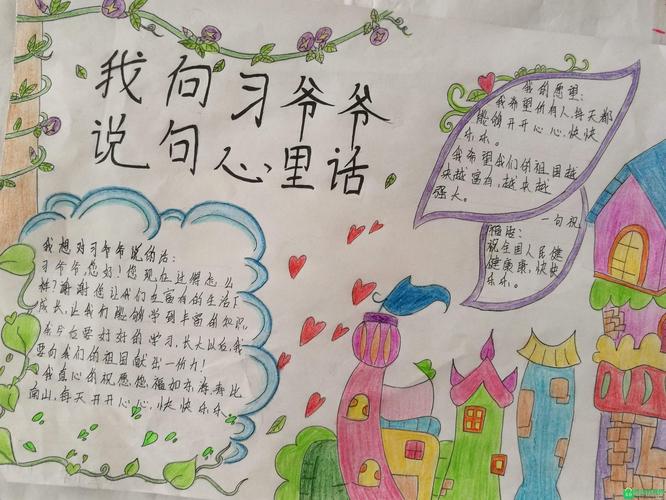 我向习爷爷
说句心里话
我的愿望:
我希望所有人,每天都
能够开开心心,快快
乐乐。
我希望我们的祖国越
来越富有,越来越
强大。
一句祝
福语:
祝全国人民健
健康康,快快
乐乐。
我想对习爷爷说的话:
习爷爷,您好!您现在过得怎么
样?谢谢您让我们在富有的生活下
成长,让我们能够学到丰富的知识。
我会要好好的学习,长大以后,我
要向我们的祖国献出一份力!
我真心的祝愿您,福如东海,寿比
南山,每天开开心心,快快乐乐。